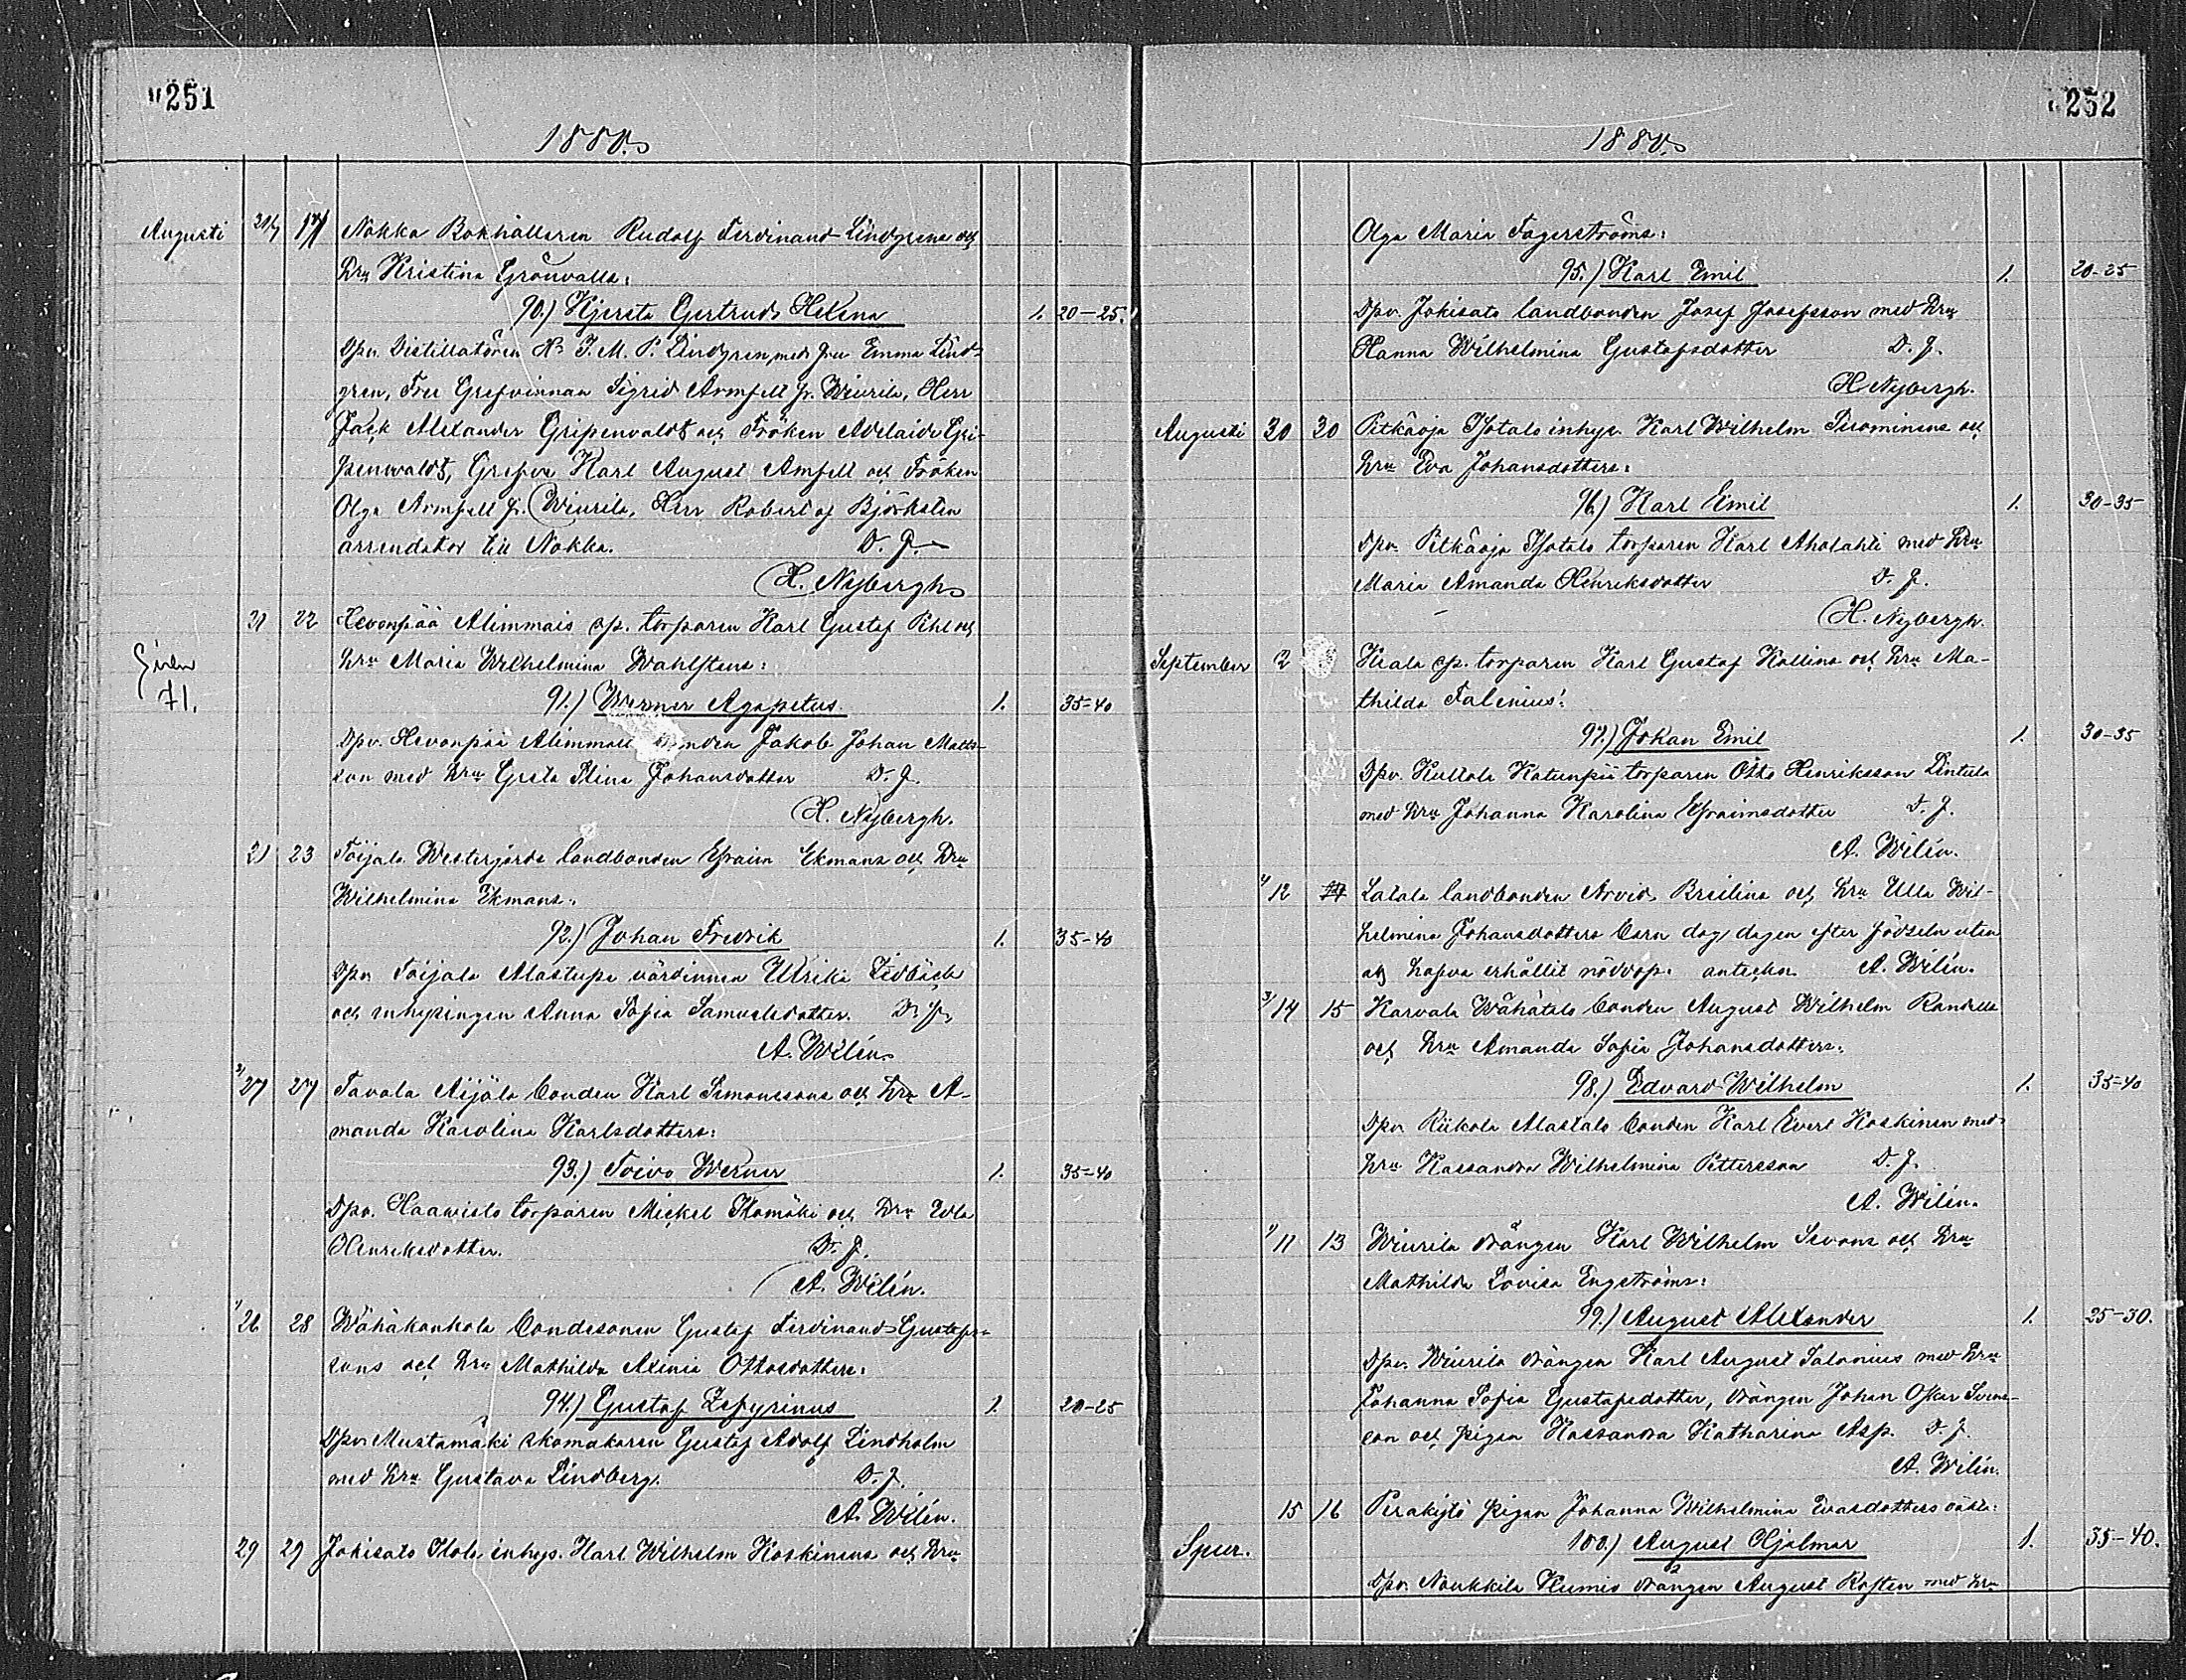 251
1880.
Augusti 21/7 17/ Nokka Bokhållaren Rudolf Ferdinand Lindgrens och
hru Kristina Grönvalls:
90.) Kjersta Gertrud Helena 1. 20-25.
Dpv. Distillatören Hr J. M. P. Lindgren, med fru Emma Lind-
gren, Fru Grefvinnan Sigrid Armfelt fr. Wiurila, Herr
Jack Alexander Gripenvaldt och Fröken Adelaide Gri-
penwaldt, Grefve Karl August Amfelt och Fröken
Olga Armfelt fr. Wiurila, Herr Robert af Björksten
arrendator till Nokka. D. J.
H. Nybergh
21 22 Hevonpää Alimmais sp. torparen Karl Gustaf Pihl och
hru Maria Wilhelmina Wahlstens:
71.
91.) Werner Agapetus 1. 35-40
Dpv. Hevonpää Jakob Johan Matts-
son med hru Greta Stina Johansdotter D. J.
H. Nybergh.
21 23 Toijala Westerjords landbonden Efraim Ekmans och hru
Wilhelmina Ekmans:
92.) Johan Fredrik 1. 35-40
Dpv. Toijala Alastupa värdinnan Ulrika Lidbäck
och inhysingen Anna Sofia Samuelsdotter. D. J.
A. Wilén.
3/27 27 Tavola Äijälä bonden Karl Simonssons och hru A-
manda Karolina Karlsdotters:
93.) Toivo Werner 1. 35-40
Dpv. Haavisto torparen Mickel Komäki och hru Eva
Henriksdotter. D. J.
A. Wilén.
1/26 28 Wähäkonkola bondesonen Gustaf Ferdinand Gustafs-
sons och hru Mathilda Axinia Ottosdotters:
94.) Gustaf Zefyrinus 1. 20-25
Dpv. Mustamäki skomakaren Gustaf Adolf Lindholm
med hru Gustava Lindberg. D. J.
A. Wilén.
29 29 Jokisato Iholo inhys. Karl Wilhelm Koskinens och hru
252
1880.
Olga Maria Fagerströms:
95.) Karl Emil 1. 20-25
Dpv. Jokisato landbonden Josef Josefsson med hru
Hanna Wilhelmina Gustafsdotter D. J.
H. Nybergh.
Augusti 30 30 Pitkäoja Isotalo inhys. Karl Wilhelm Suominens och
hru Eva Johansdotters:
96.) Karl Emil 1. 30-35
Dpv. Pitkäoja Isotalo torparen Karl Aholahti med hru
Maria Amanda Henriksdotter D. J.
H. Nybergh.
September 2 sp. torparen Karl Gustaf Kallina och hru Ma-
thilda Falenius:
97.) Johan Emil 1. 30-35
Dpv. Kullola Katunpii torparen Otto Henriksson Lintula
med hru Johanna Karolina Efraimsdotter D. J.
A. Wilén.
1/12 landbonden Arvid Breilins och hru Ulla Wil-
helmina Johansdotters barn dog dagen efter födseln utan
att hafva erhållit nöddop. A. Wilén.
3/14 15 Karvala Wähätalo bonden August Wilhelm Randells
och hru Amanda Sofia Johansdotters:
98.) Edvard Wilhelm 1. 35-40
Dpv. Riikola Alastalo bonden Karl Evert Koskinen med
hru Kassandra Wilhelmina Pettersson D. J.
A. Wilén.
1/11 13 Wiurila drängen Karl Wilhelm Sevons och hru
Mathilda Lovisa Engströms:
99.) August Alexander 1. 25-30.
Dpv. Wiurila drängen Karl August Salonius med hru
Johanna Sofia Gustafsdotter, drängen Johan Oskar Svens-
son och pigan Kassandra Katharina Asp. D. J.
A. Wilén.
15 16 Perakylö pigan Johanna Wilhelmina Evasdotters oäkta:
Spur. 100.) August Hjalmar 1. 35-40.
Dpv. Naukkila Kumio drängen August Rosten med hru